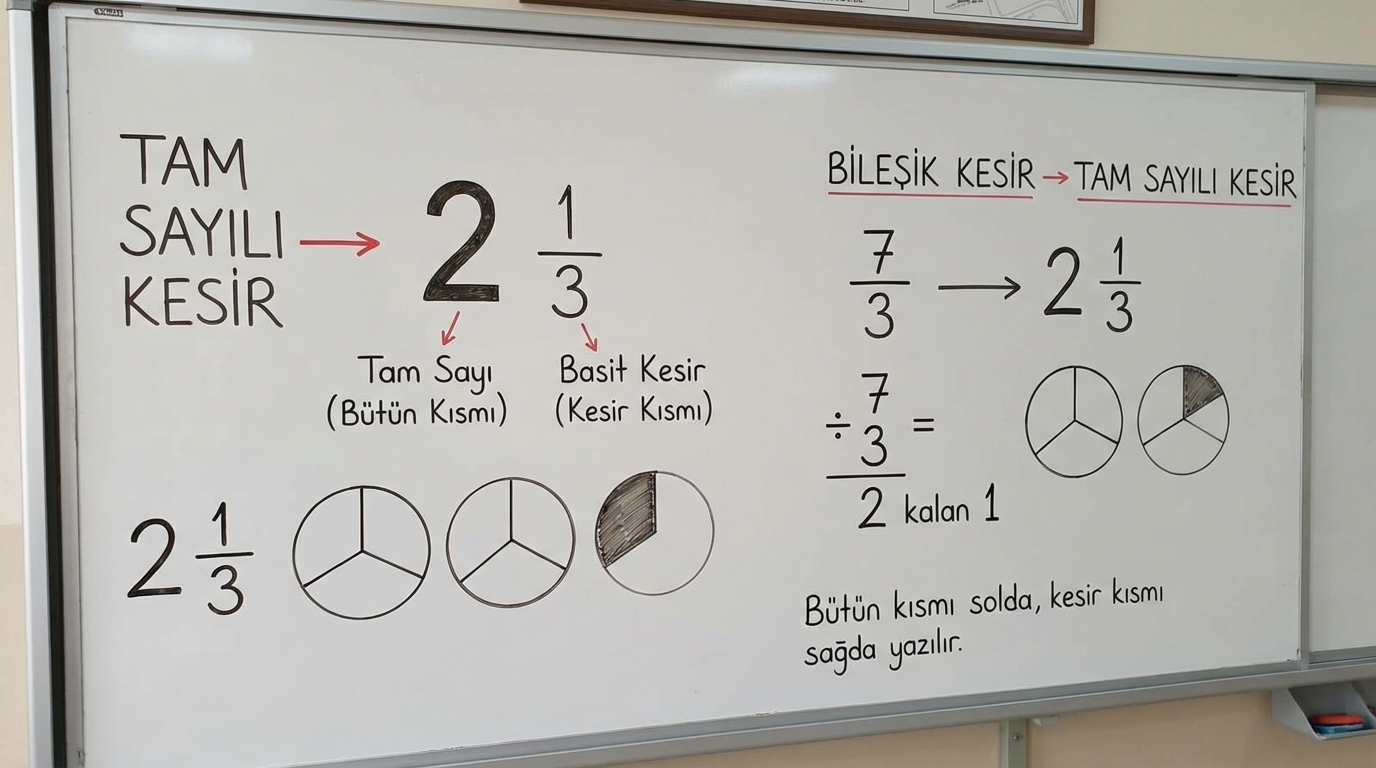 TAM
SAYILI
KESİR
→ 2 1/3
Tam Sayı
(Bütün Kısmı)
Basit Kesir
(Kesir Kısmı)
2 1/3
BİLEŞİK KESİR → TAM SAYILI KESİR
7/3 → 2 1/3
7
÷ 3 =
2 kalan 1
Bütün kısmı solda, kesir kısmı
sağda yazılır.